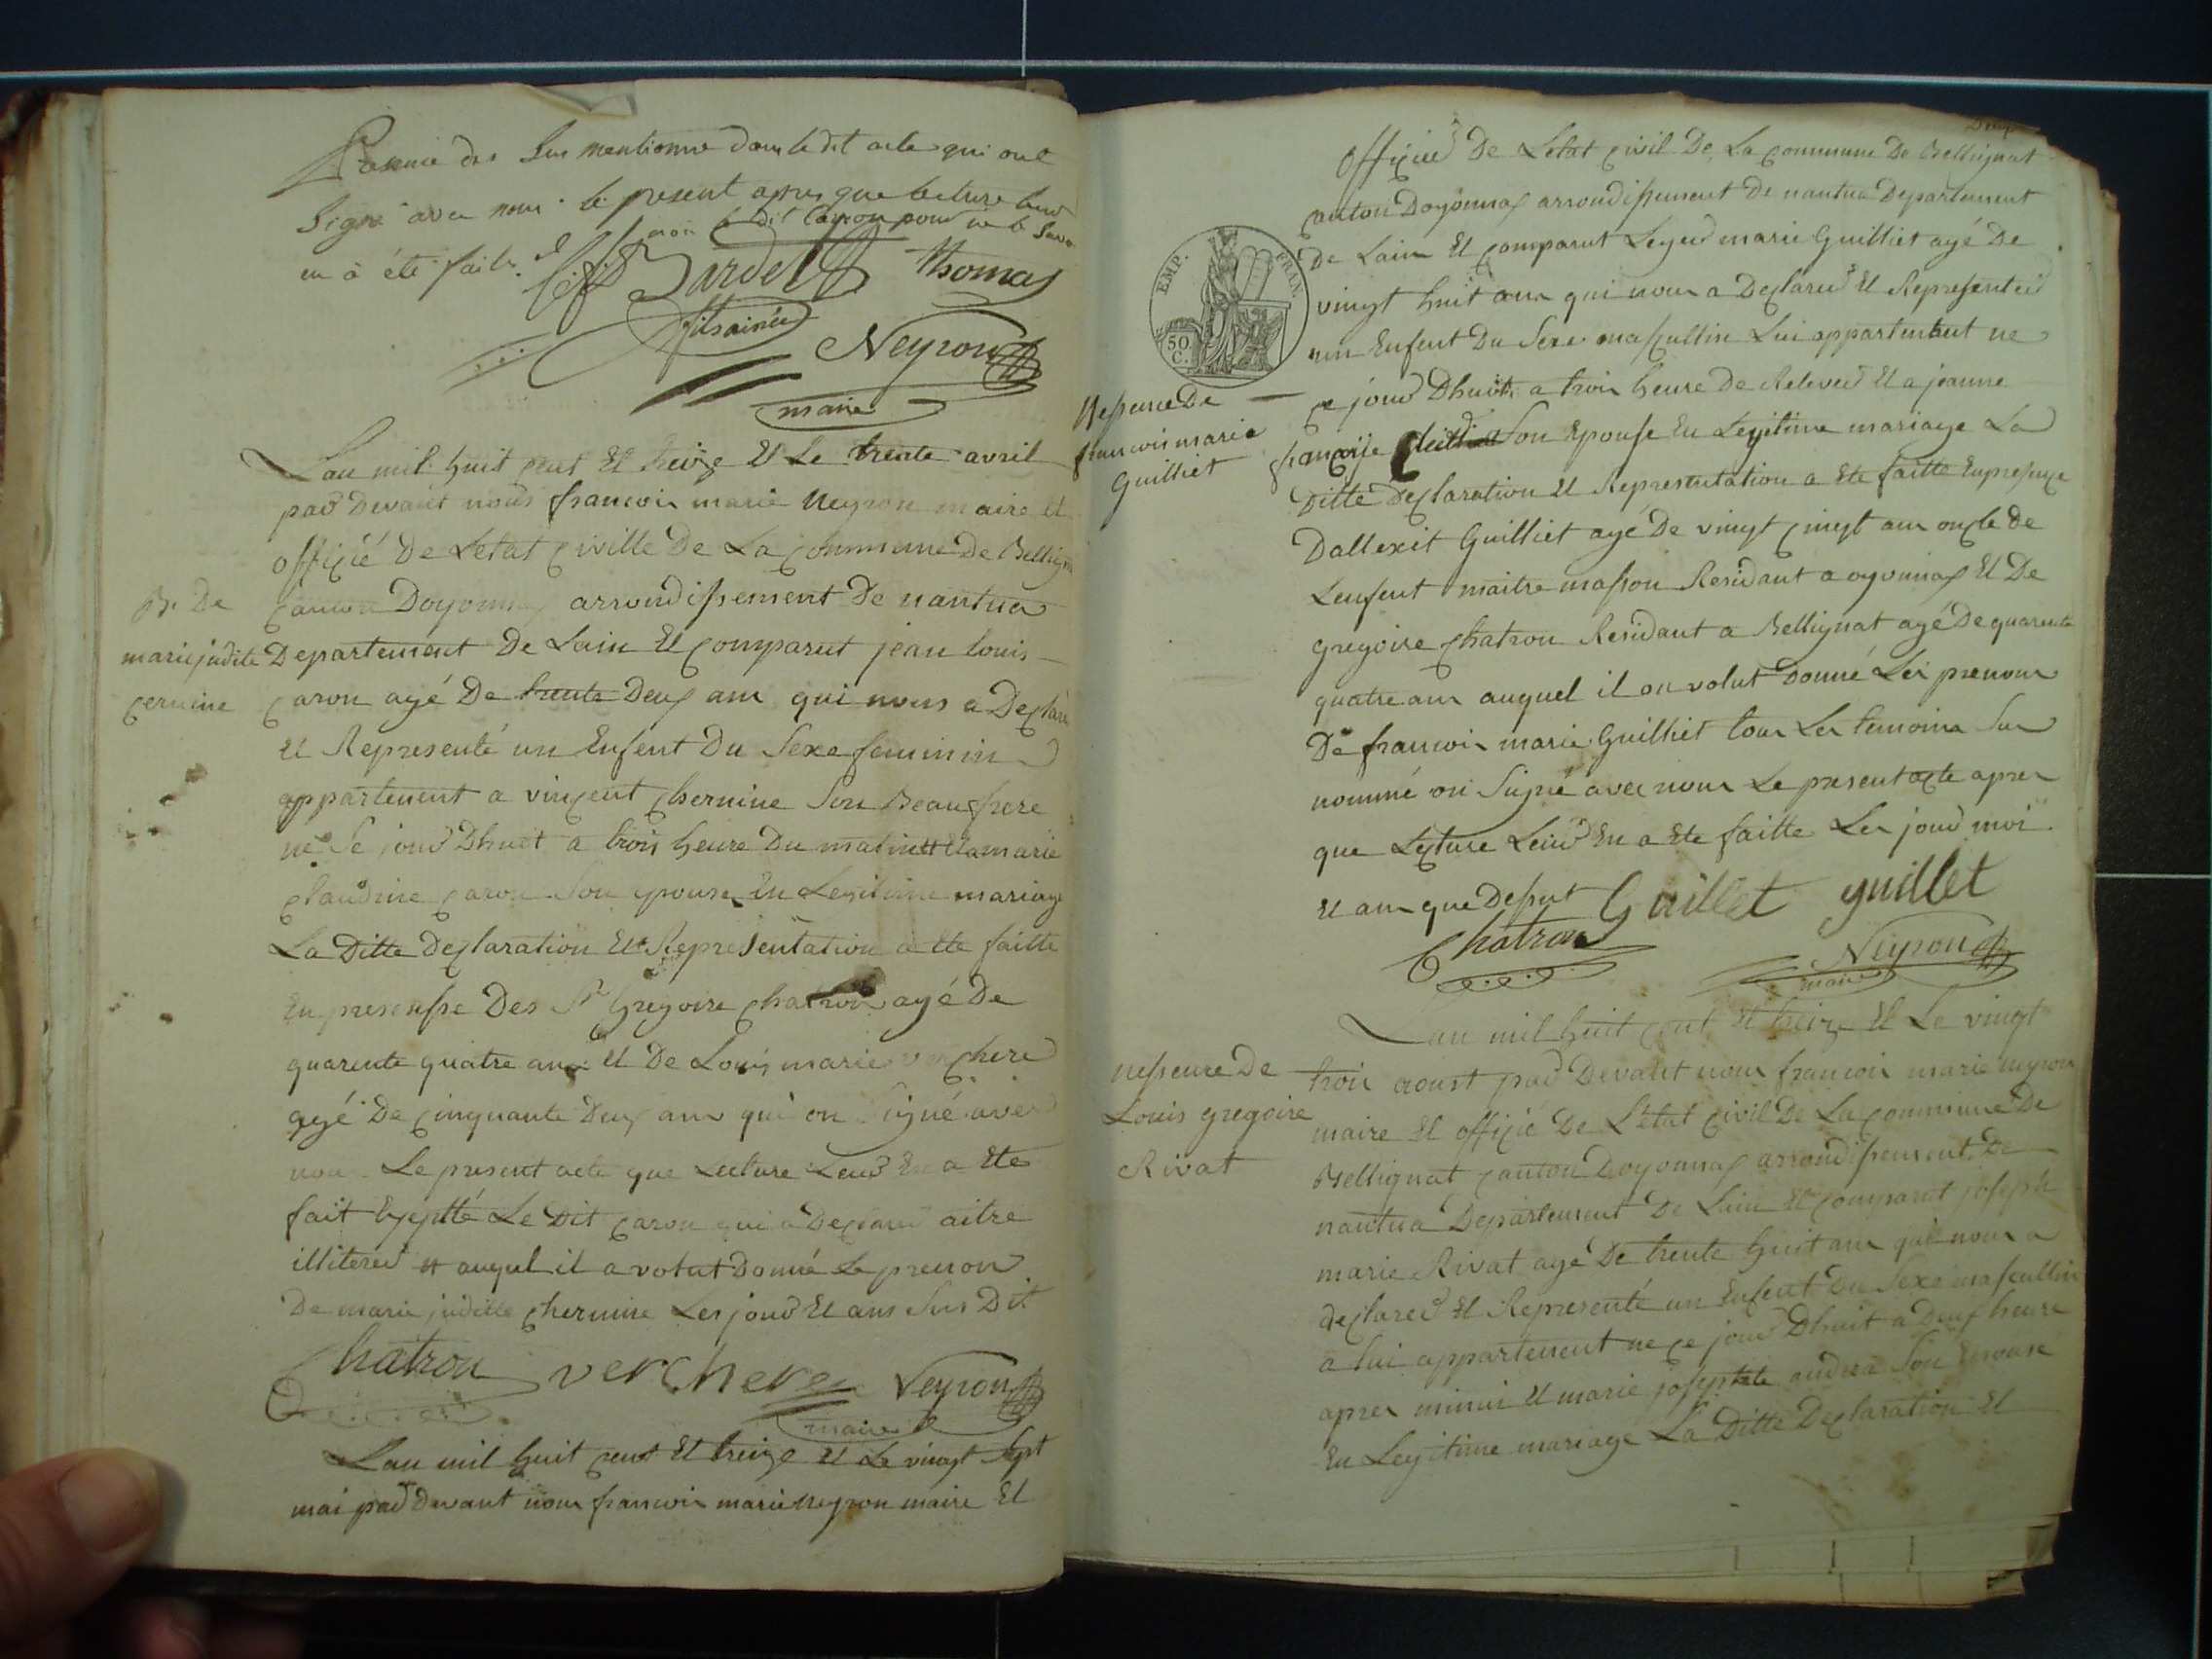 des sus mentionné dans le dit acte qui ont
Signé avec nous le present apres que lecture leur
non le dit Caron pour ne le Savoi
en a été faite
Bardel Thomas
fils ainée
Neyron
maire
Lan mil huit cent Et treize Et Le trente avril
par Devant nous francois marie Neyron maire et
officié De Letat Civille De La Commune De Bellign
Canton Doyonnax arrondissement De nantua
N. De
marie judite
cernine
Departement De Lain Et Comparut jean louis
Caron agé De trente Deux ans qui nous a Declaré
Et Representé un Enfent Du Sexe feminin
appartenent a vincent Chernine Son Beaufrere
né Ce jour Dhuit a trois heure Du matin Et a marie
Claudine Caron Son epouse En Legitime mariage
La Ditte Declaration Et Representation a Ete faitte
En presensse Des Sr Gregoire Chatron agé De
quarente quatre ans Et De Louis marie verchere
agé De Cinquante Deux ans qui on Signé avec
nou Le present acte que Lecture Leur En a Ete
fait Excptté Le Dit Caron qui a Declaré aitre
illiteré et auquel il a volut Donné Le prenon
De marie juditte Chernine Les jour Et ans Sus Dit
Chatron verchere Neyron
maire
Lan mil huit cent Et treize Et Le vingt Sept
mai par Devant nous francois marie neyron maire Et
officié De Letat Civil De La Commune De Bellignat
Canton Doyonnax arrondissement De nantua Departement
De Lain Et Comparut Leger marie Guilliet agé De
vingt huit ans qui nous a Declaré Et Representé
EMP. FRAN.
50 C.
un Enfent Du Sexe mascullin Lui appartenent ne
Nessence De
francois marie
Guilliet
Ce jour Dhuit a trois heure De Relevé Et a jeanne
francoise Son Epouse En Legitime mariage La
Ditte Declaration Et Representation a Ete faitte En presence
Dallexit Guilliet agé De vingt Cinqt ans oncle De
Lenfent maitre masson Residant a oyonnax Et De
Gregoire Chatron Residant a Bellignat agé De quarente
quatre ans auquel il on volut Donné Les prenoms
De francois marie Guilliet tous Les temoins Sus
nommé on Signé avec nous Le present acte apres
que Lecture Leur En a Ete faitte Les jour moi
Et ans que Desut Guillet guillet
Chatron
Neyron
maire
Lan mil huit cent Et treize Et Le vingt
nessence De
Louis gregoire
Rivat
troi aoust par Devant nous francois marie neyron
maire Et officié De Letat Civil De La Commune De
Bellignat Canton Doyonnax arrondissement De
nantua Departement De Lain Et Comparut joseph
marie Rivat agé De trente huit ans qui nous a
Declaré Et Representé un Enfent Du Sexe mascullin
a lui appartenent ne Ce jour Dhuit a Deux heure
apres minui Et marie josephte Son Epouse
En Legitime mariage La Ditte Declaration Et